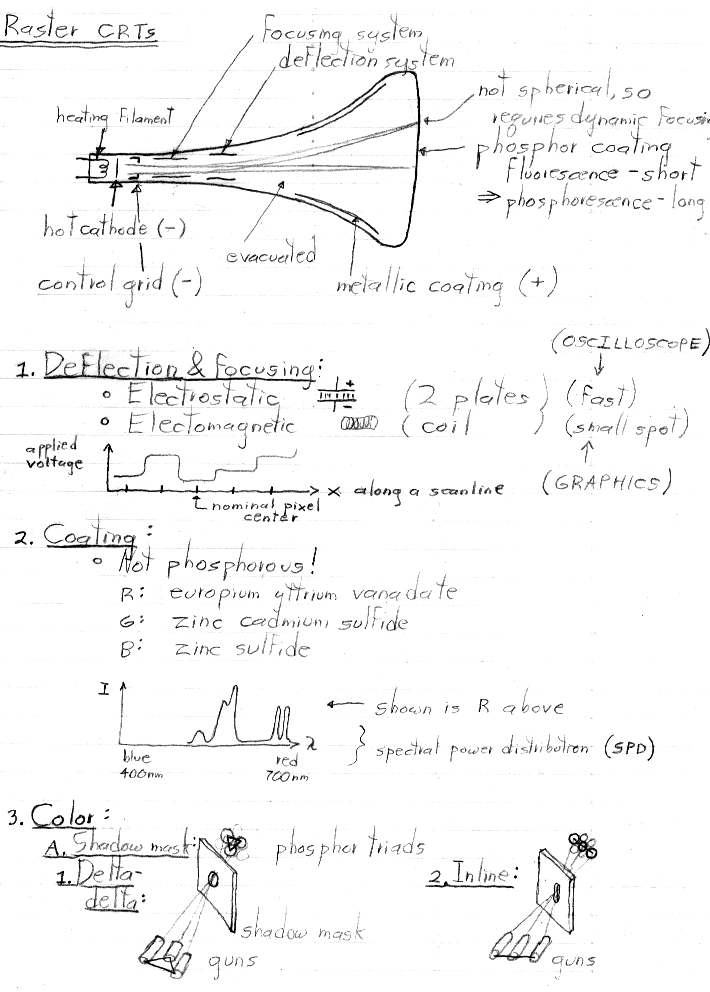 Raster CRTs
focusing system
deflection system
heating filament
not spherical, so
requires dynamic focusing
phosphor coating
fluorescence - short
⇒ phosphorescence - long
hot cathode (-)
evacuated
control grid (-)
metallic coating (+)
(OSCILLOSCOPE)
1. Deflection & Focusing:
∘ Electrostatic + - (2 plates) (fast)
∘ Electomagnetic (coil) (small spot)
(GRAPHICS)
applied
voltage
x along a scanline
nominal pixel
center
2. Coating:
∘ Not phosphorous!
R: europium yttrium vanadate
G: zinc cadmium sulfide
B: zinc sulfide
I
← shown is R above
λ } spectral power distribution (SPD)
blue red
400nm 700nm
3. Color:
A. Shadow mask: phosphor triads
1. Delta-
delta:
2. Inline:
shadow mask
guns guns